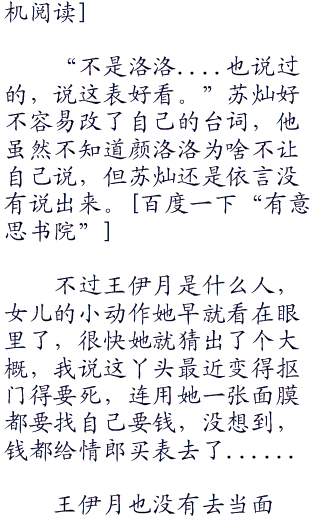 机阅读]
“不是洛洛....也说过
的，说这表好看。”苏灿好
不容易改了自己的台词，他
虽然不知道颜洛洛为啥不让
自己说，但苏灿还是依言没
有说出来。[百度一下“有意
思书院”]
不过王伊月是什么人，
女儿的小动作她早就看在眼
里了，很快她就猜出了个大
概，我说这丫头最近变得抠
门得要死，连用她一张面膜
都要找自己要钱，没想到，
钱都给情郎买表去了......
王伊月也没有去当面